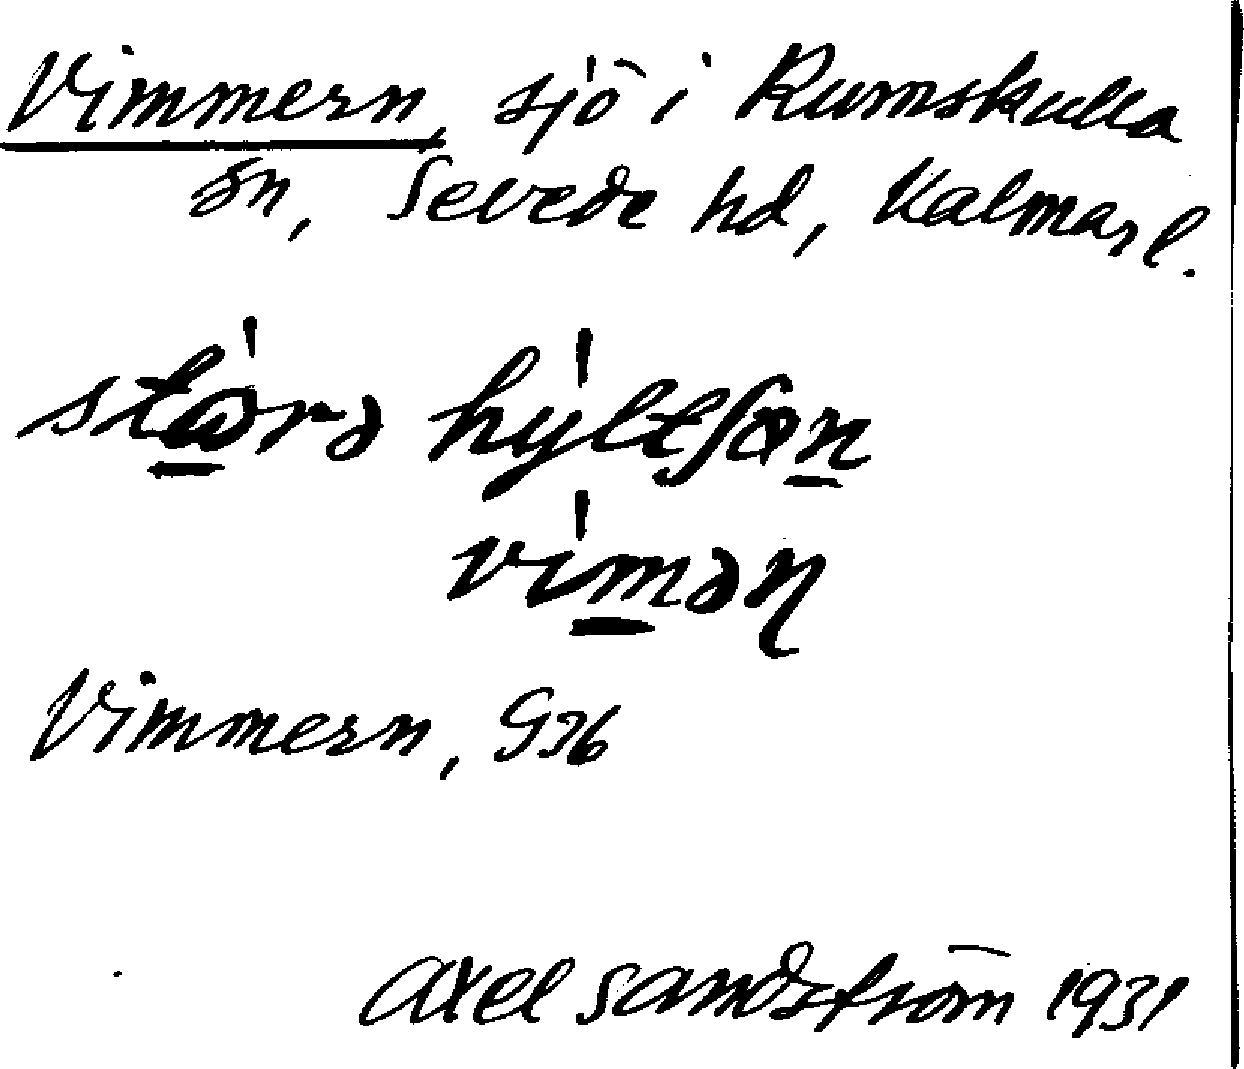 Vimmern, sjö i Rumskulla
sn, Sevede hd, Kalmar l.
vímən
Vimmern, G36
Axel Sandström 1931